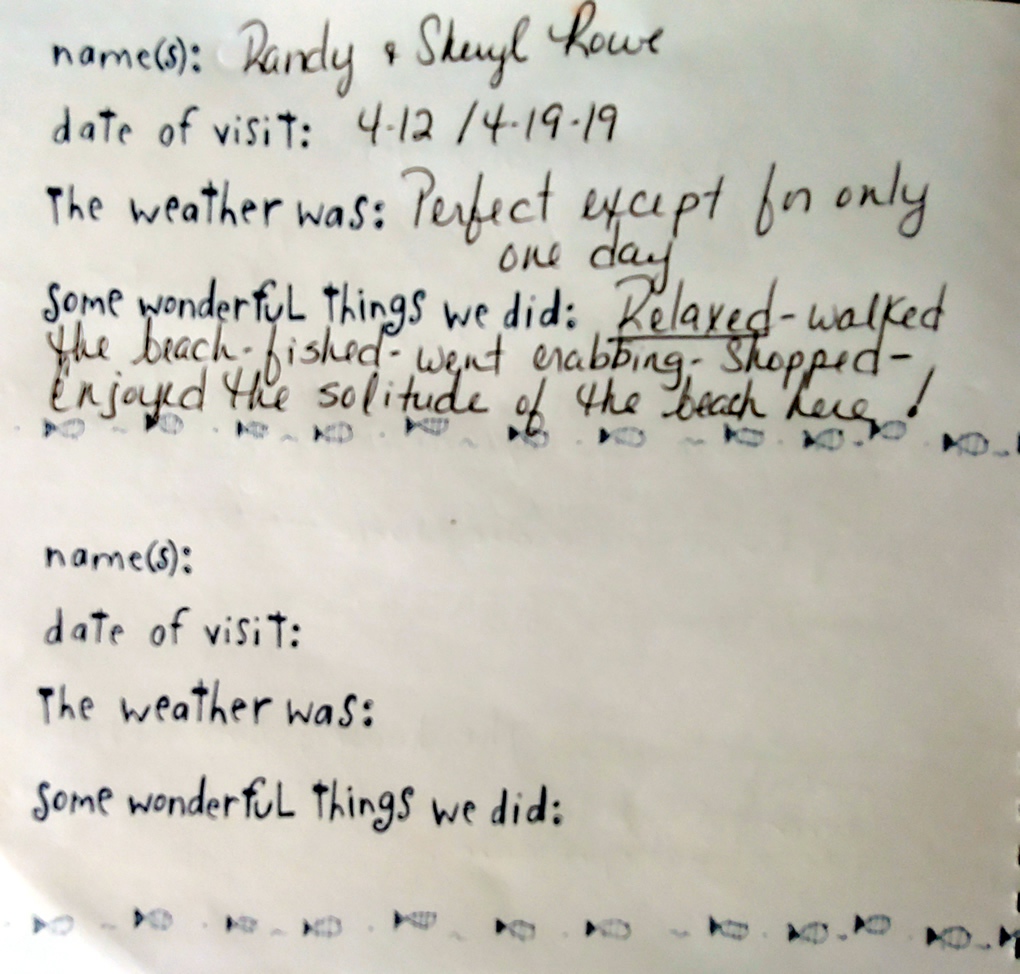 name(s): Randy & Sheryl Rowe
date of visit: 4-12 / 4-19-19
The weather was: Perfect except for only
one day
Some wonderful things we did: Relaxed - walked
the beach - fished - went crabbing - shopped -
Enjoyed the solitude of the beach here!
name(s):
date of visit:
The weather was:
Some wonderful things we did: